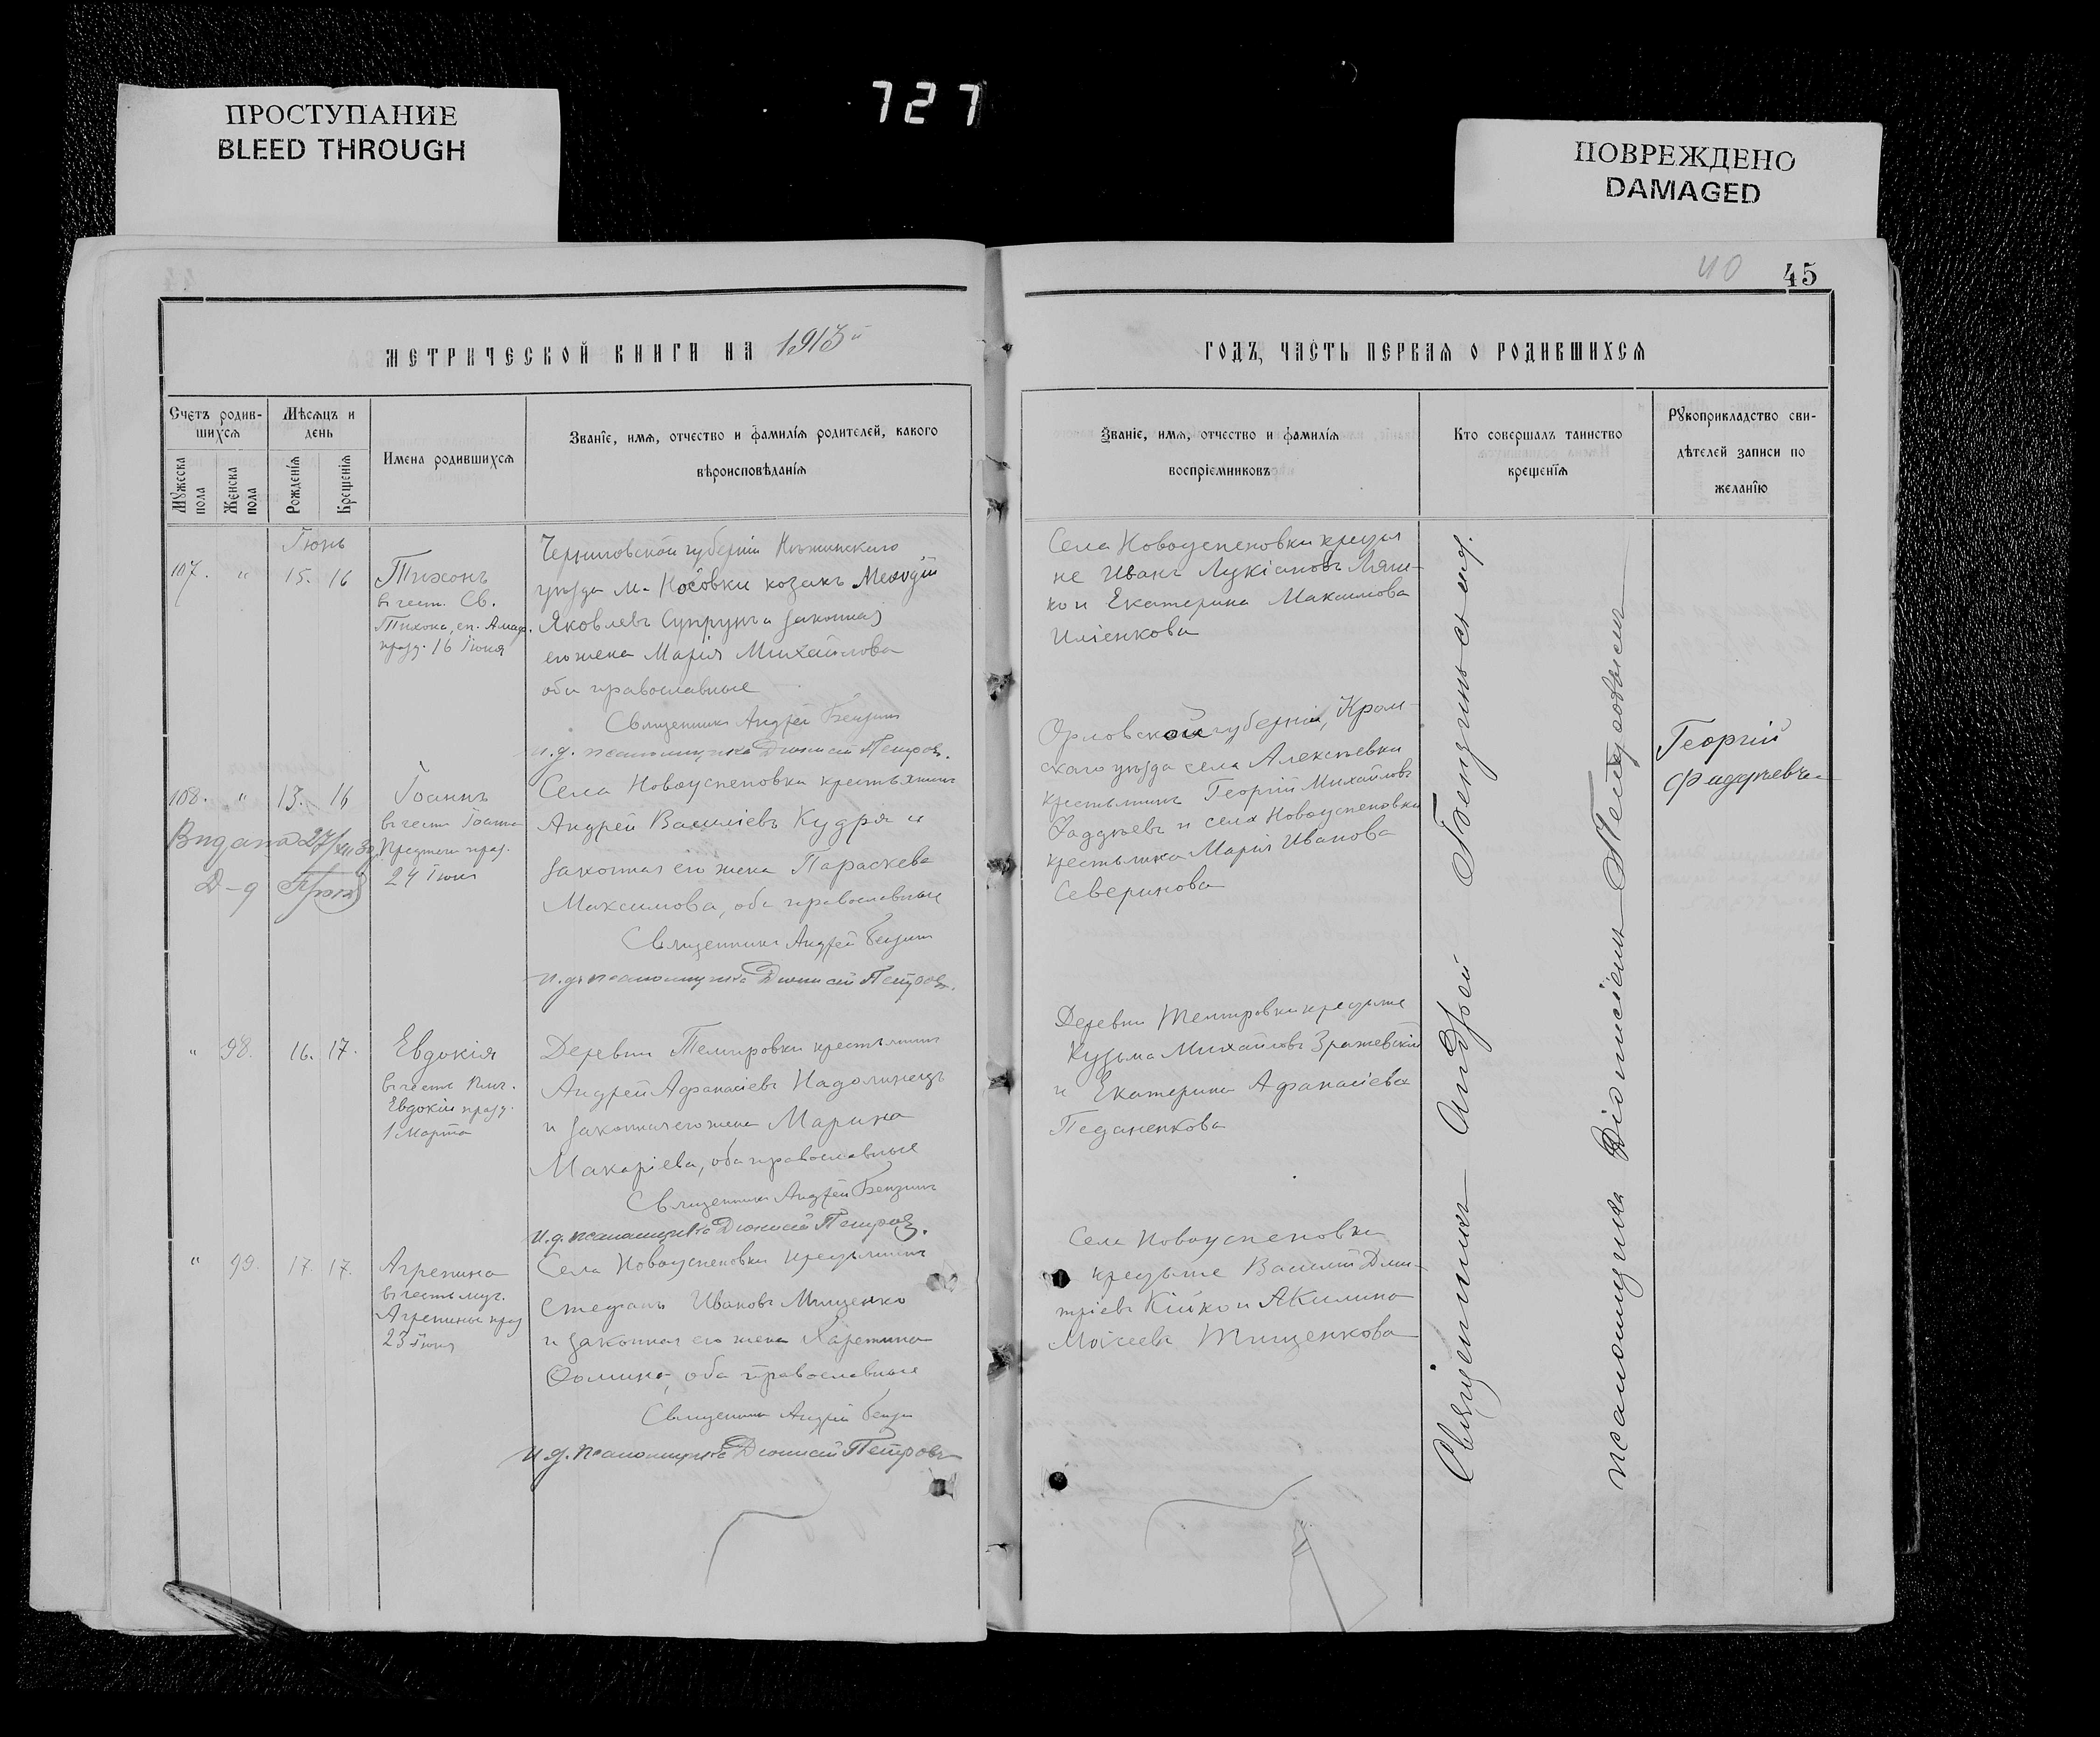 727
ПРОСТУПАНИЕ
BLEED THROUGH
ПОВРЕЖДЕНО
DAMAGED
40 45
МЕТРИЧЕСКОЙ КНИГИ НА 1913й
ГОДЪ, ЧАСТЬ ПЕРВАЯ О РОДИВШИХСЯ
Счетъ родив-
шихся
Мужеска пола
Женска пола
Мѣсяцъ и
день
Рожденія
Крещенія
Имена родившихся
Званіе, имя, отчество и фамилія родителей, какого
вѣроисповѣданія
Званіе, имя, отчество и фамилія
воспріемниковъ
Кто совершалъ таинство
крещенія
Рукоприкладство сви-
дѣтелей записи по
желанію
Іюнь
107. " 15. 16
Тихонъ
въ чест. Св.
Тихона, еп. Амаф.
празд. 16 Іюня
Черниговской губерніи Нѣжинскаго
уѣзда м. Носовки козакъ Меѳодій
Яковлевъ Супрунъ и законная
его жена Марія Михайлова
оба православные
Священникъ Андрей Бензинъ
и. д. псаломщика Діонисій Петровъ.
Села Новоуспеновки крестья
не Иванъ Лукіановъ Ляш-
ко и Екатерина Максимова
Иліенкова
108. " 13. 16
Видана 27/XII 30
Д-д
Іоаннъ
въ честь Іоанна
Предтечи празд.
24 Іюня
Села Новоуспеновки крестьянинъ
Андрей Василіевъ Кудря и
законная его жена Параскева
Максимова, оба православные
Священникъ Андрей Бензинъ
и. д. псаломщика Діонисій Петровъ.
Орловской губерніи, Кром-
скаго уѣзда села Алексѣевки
крестьянинъ Георгій Михайловъ
Фаддѣевъ и села Новоуспеновки
крестьянка Марія Иванова
Северинова
Георгій
Фаддѣевъ
" 98. 16. 17.
Евдокія
въ честь муч.
Евдокіи празд.
1 Марта
Деревни Темировки крестьянинъ
Андрей Афанасіевъ Надолинецъ
и законная его жена Марина
Макаріева, оба православные
Священникъ Андрей Бензинъ
и. д. псаломщика Діонисій Петровъ.
Деревни Темировки крестьяне
Кузьма Михайловъ Зражевскій
и Екатерина Афанасіева
Педаненкова
" 99. 17. 17.
Агрепина
въ честь муч.
Агрепины празд
23 Іюня
Села Новоуспеновки крестьянинъ
Стефанъ Ивановъ Мищенко
и законная его жена Харитина
Ѳомина, оба православные
Священникъ Андрей Бензин
и. д. псаломщика Діонисій Петровъ
Села Новоуспеновки
крестьяне Василій Дми-
тріевъ Кійко и Акилина
Моисеева Тищенкова
Священникъ Андрей Бензинъ съ и. д.
псаломщика Діонисіемъ Петровымъ